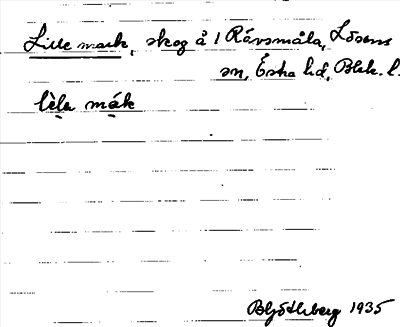 Lille mark, skog å 1 Rävsmåla, Lösens
sn, Östra hd, Blek. l.
lèla mák
1935